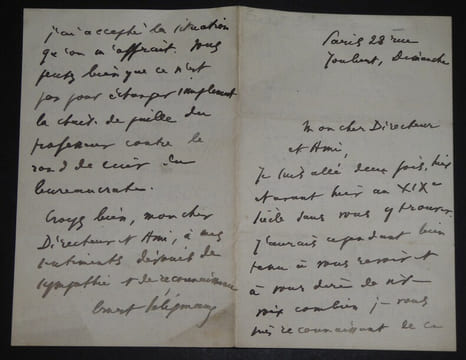 Paris 28 rue
Joubert, Dimanche
Mon cher Directeur
et Ami,
Je suis allé deux fois, hier
et avant hier au XIXe
siècle sans vous y trouver.
J'aurais cependant bien
tenu à vous revoir et
à vous dire de vive
voix combien je vous
suis reconnaissant de ce
j'ai accepté la situation
qu'on m'offrait. Vous
pensez bien que ce n'est
pas pour échanger simplement
la chaise de paille du
professeur contre le
rond de cuir du
bureaucrate.
Croyez bien, mon cher
Directeur et Ami, à mes
sentiments dévoués de
sympathie et de reconnaissance